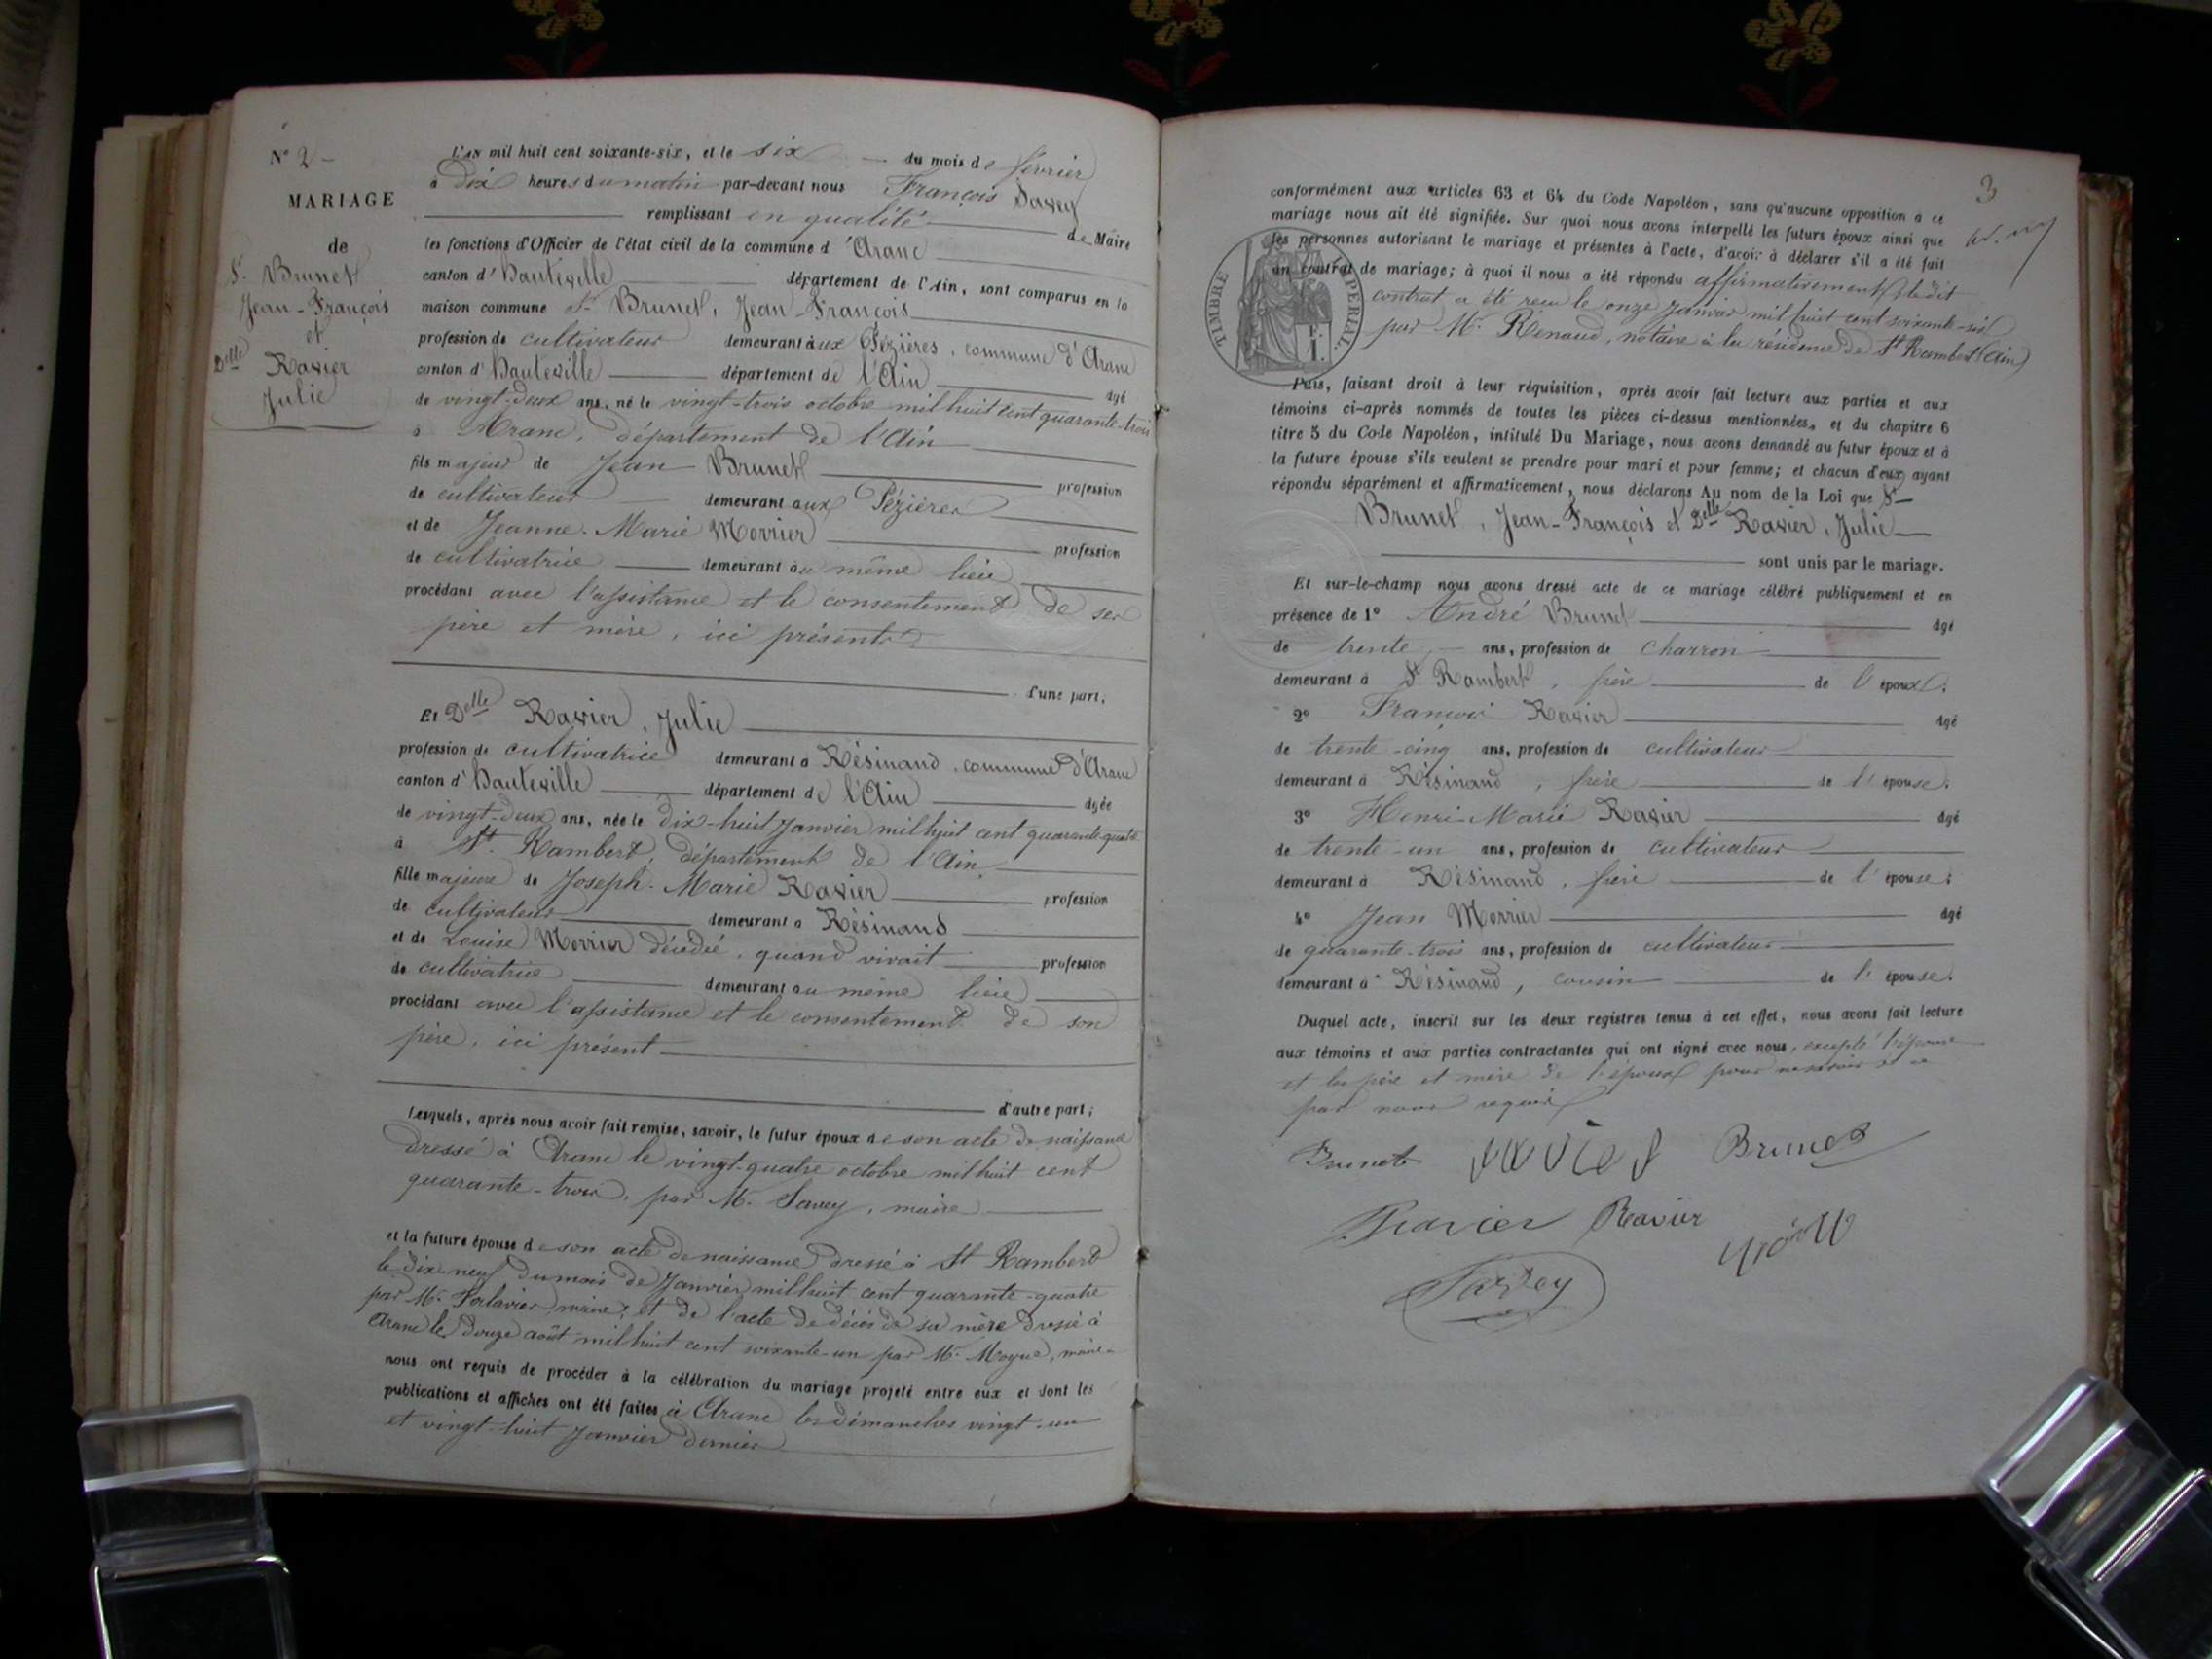 N° 2 -
MARIAGE
de
Sr Brunet
Jean-François
et
Delle Ravier
Julie
L'an mil huit cent soixante-six, et le six du mois de février
à dix heures du matin par-devant nous François Savey
remplissant en qualité de Maire
les fonctions d'Officier de l'état civil de la commune d'Aranc
canton d'Hauteville département de l'Ain, sont comparus en la
maison commune Sr Brunet, Jean-François
profession de cultivateur demeurant aux Pézières, commune d'Aranc
canton d'Hauteville département de l'Ain âgé
de vingt-deux ans, né le vingt-trois octobre mil huit cent quarante-trois
à Aranc, département de l'Ain
fils majeur de Jean Brunet profession
de cultivateur demeurant aux Pézières
et de Jeanne-Marie Morrier profession
de cultivatrice demeurant au même lieu
procédant avec l'assistance et le consentement de ses
père et mère, ici présents
d'une part,
Et Delle Ravier, Julie
profession de cultivatrice demeurant à Résinand, commune d'Aranc
canton d'Hauteville département de l'Ain âgée
de vingt-deux ans, née le dix-huit Janvier mil huit cent quarante-quatre
à St Rambert, département de l'Ain
fille majeure de Joseph-Marie Ravier profession
de cultivateur demeurant à Résinand
et de Louise Morrier décédée, quand vivait profession
de cultivatrice demeurant au même lieu
procédant avec l'assistance et le consentement de son
père, ici présent
d'autre part;
Lesquels, après nous avoir fait remise, savoir, le futur époux de son acte de naissance
dressé à Aranc le vingt-quatre octobre mil huit cent
quarante-trois, par Mr. Savey, maire
et la future épouse de son acte de naissance dressé à St Rambert
le dix-neuf du mois de Janvier mil huit cent quarante-quatre
par Mr. maire; et de l'acte de décès de sa mère dressé à
Aranc le douze août mil huit cent soixante-un par Mr. Moyne, maire
nous ont requis de procéder à la célébration du mariage projeté entre eux et dont les
publications et affiches ont été faites à Aranc les dimanches vingt-un
et vingt-huit Janvier dernier
3
conformément aux articles 63 et 64 du Code Napoléon, sans qu'aucune opposition à ce
mariage nous ait été signifiée. Sur quoi nous avons interpellé les futurs époux ainsi que
les personnes autorisant le mariage et présentes à l'acte, d'avoir à déclarer s'il a été fait
un contrat de mariage; à quoi il nous a été répondu affirmativement, ledit
contrat a été reçu le onze Janvier mil huit cent soixante-six
par Mr. Renaud, notaire à la résidence de St Rambert (Ain)
TIMBRE IMPÉRIAL
Puis, faisant droit à leur réquisition, après avoir fait lecture aux parties et aux
témoins ci-après nommés de toutes les pièces ci-dessus mentionnées, et du chapitre 6
titre 5 du Code Napoléon, intitulé Du Mariage, nous avons demandé au futur époux et à
la future épouse s'ils veulent se prendre pour mari et pour femme; et chacun d'eux ayant
répondu séparément et affirmativement, nous déclarons Au nom de la Loi que Sr
Brunet, Jean-François et Delle Ravier, Julie
sont unis par le mariage.
Et sur-le-champ nous avons dressé acte de ce mariage célébré publiquement et en
présence de 1° André Brunet âgé
de trente ans, profession de charron
demeurant à St Rambert, frère de l'époux.
2° François Ravier âgé
de trente-cinq ans, profession de cultivateur
demeurant à Résinand, frère de l'épouse.
3° Henri-Marie Ravier âgé
de trente-un ans, profession de cultivateur
demeurant à Résinand, frère de l'épouse;
4° Jean Morrier âgé
de quarante-trois ans, profession de cultivateur
demeurant à Résinand, cousin de l'épouse.
Duquel acte, inscrit sur les deux registres tenus à cet effet, nous avons fait lecture
aux témoins et aux parties contractantes qui ont signé avec nous, excepté l'épouse
et les père et mère de l'époux pour ne savoir de ce
par nous requis
Brunet ravier Brunet
Ravier Ravier
Savey